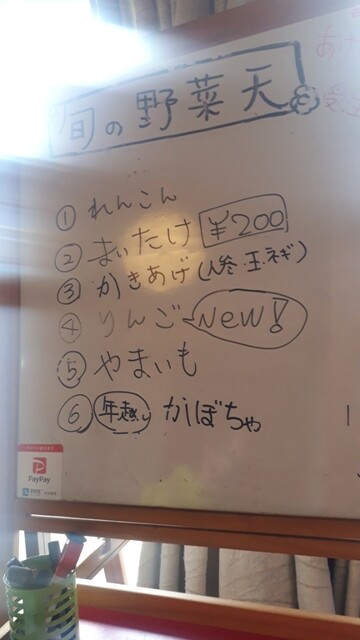 旬の野菜天
① れんこん
② まいたけ ¥200
③ かきあげ(人参・玉ネギ)
④ りんご NEW!
⑤ やまいも
⑥ 年越し かぼちゃ
PayPay